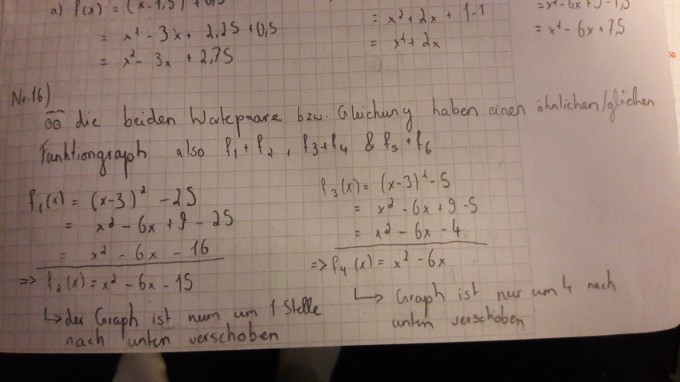 a) f(x) = (x-1,5)² + 0,5
= x² - 3x + 2,25 + 0,5
= x² - 3x + 2,75
= x² + 2x + 1-1
= x² + 2x
= x² - 6x + 7,5
Nr. 16)
die beiden Wertepaare bzw. Gleichung haben einen ähnlichen/gleichen
Funktiongraph also f₁ + f₂ , f₃+f₄ & f₅ + f₆
f₁(x) = (x-3)² - 25
= x² - 6x + 9 - 25
= x² - 6x - 16
=> f₂(x) = x² - 6x - 15
↳ der Graph ist nur um 1 Stelle
nach unten verschoben
f₃(x) = (x-3)² - 5
= x² - 6x + 9 - 5
= x² - 6x - 4
=> f₄(x) = x² - 6x
↳ Graph ist nur um 4 nach
unten verschoben